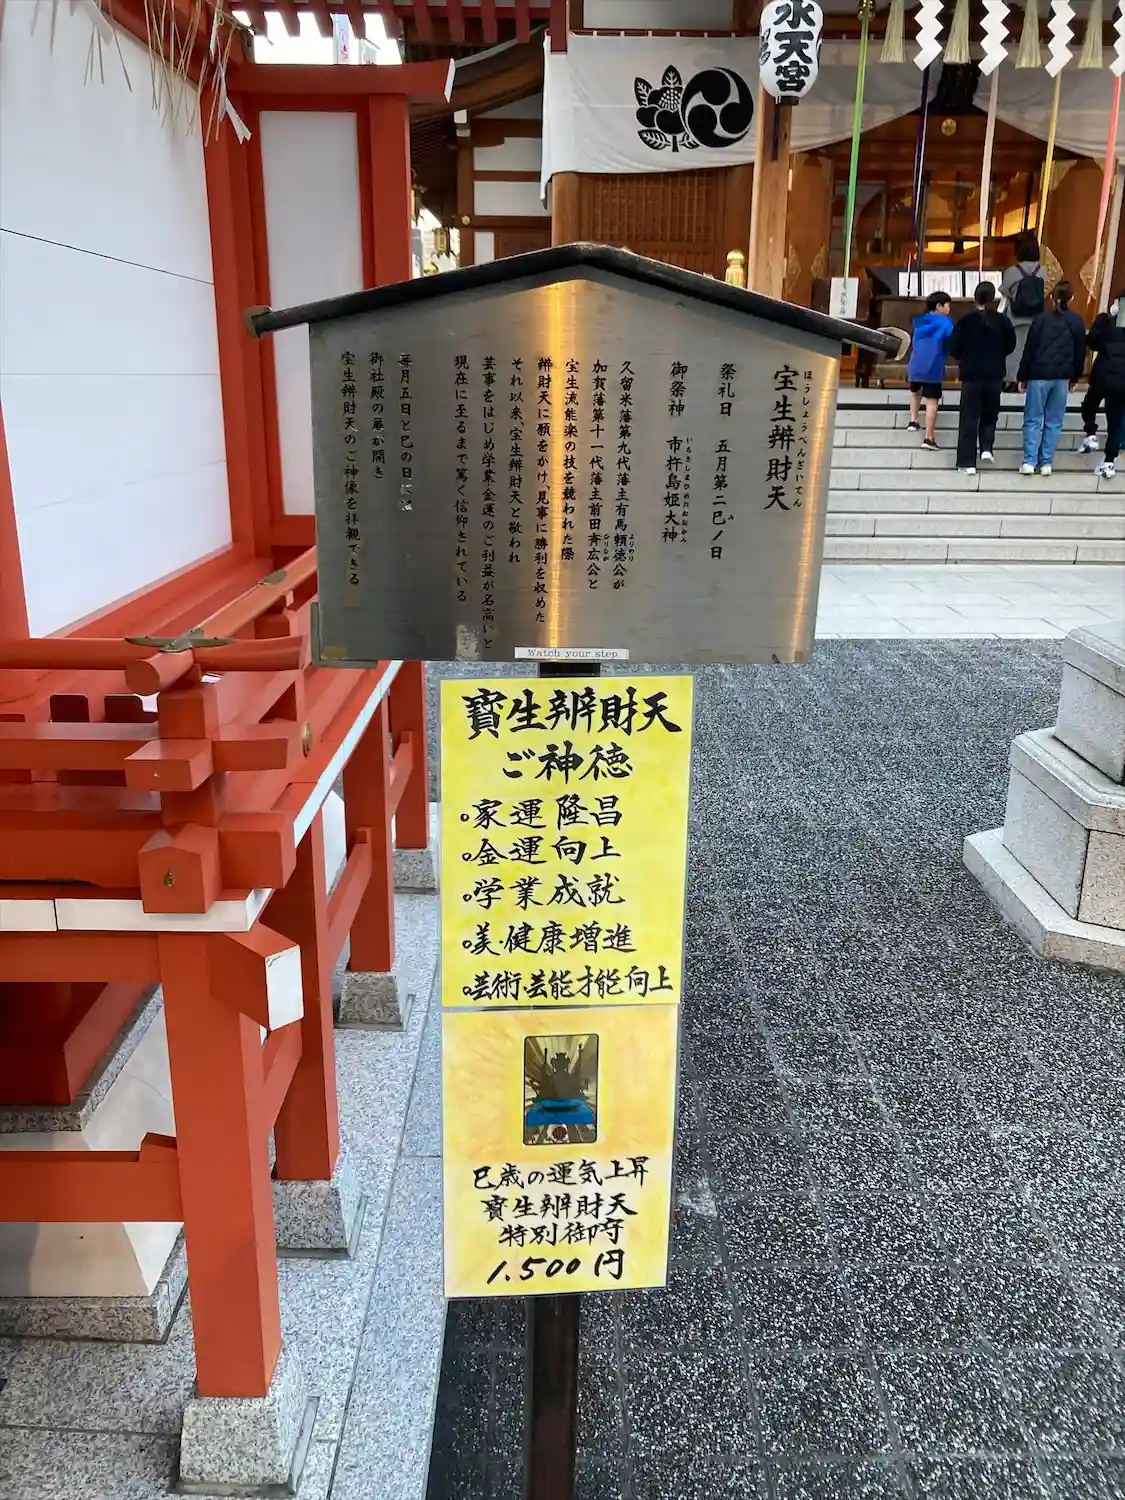 水天宮
宝生辨財天
ほうしょうべんざいてん
祭礼日 五月第二巳ノ日
み
御祭神 市杵島姫大神
いちきしまひめのおおかみ
久留米藩第九代藩主有馬頼徳公が
よりのり
加賀藩第十一代藩主前田斉広公と
なりなが
宝生流能楽の技を競われた際
辨財天に願をかけ、見事に勝利を収めた
それ以来、宝生辨財天と敬われ
芸事をはじめ学業・金運のご利益が名高いと
現在に至るまで篤く信仰されている
毎月五日と巳の日には
御社殿の扉が開き
宝生辨財天のご神像を拝観できる
Watch your step
寳生辨財天
ご神徳
。家運隆昌
。金運向上
。学業成就
。美・健康増進
。芸術・芸能才能向上
巳歳の運気上昇
寳生辨財天
特別御守
1.500円